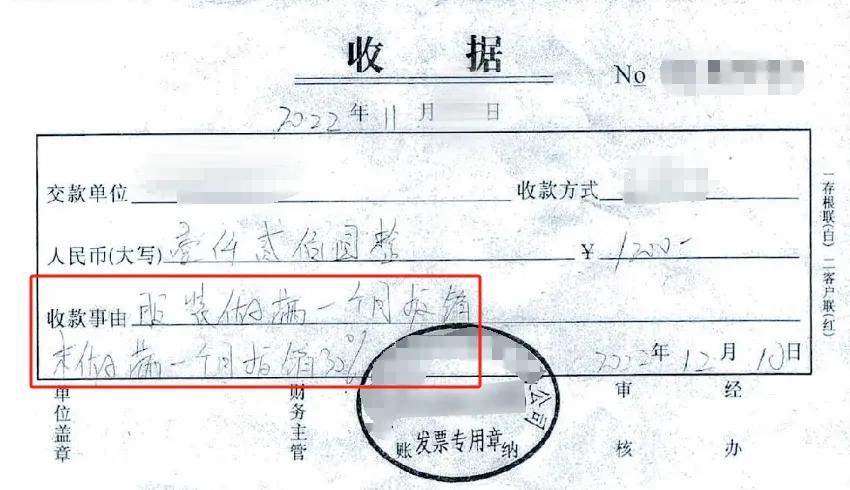 收 据
No
2022年11月 日
交款单位 收款方式
人民币(大写)壹仟贰佰圆整 ¥1200-
收款事由 服装做满一个月报销
未做满一个月报销30%
2022年12月10日
单位盖章 财务主管 审核 经办
公司
账 发票专用章 纳
一存根联(白) 二客户联(红)